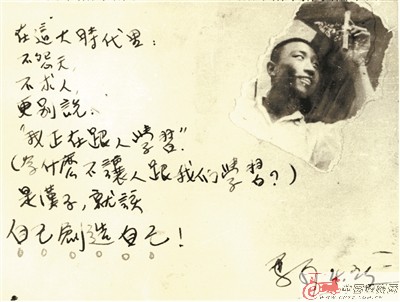 在這大時代里：
不怨天，
不求人，
更別說：
"我正在跟人學習"．
(為什麼不讓人跟我們學習?)
是漢子，就該
自己創造自己！